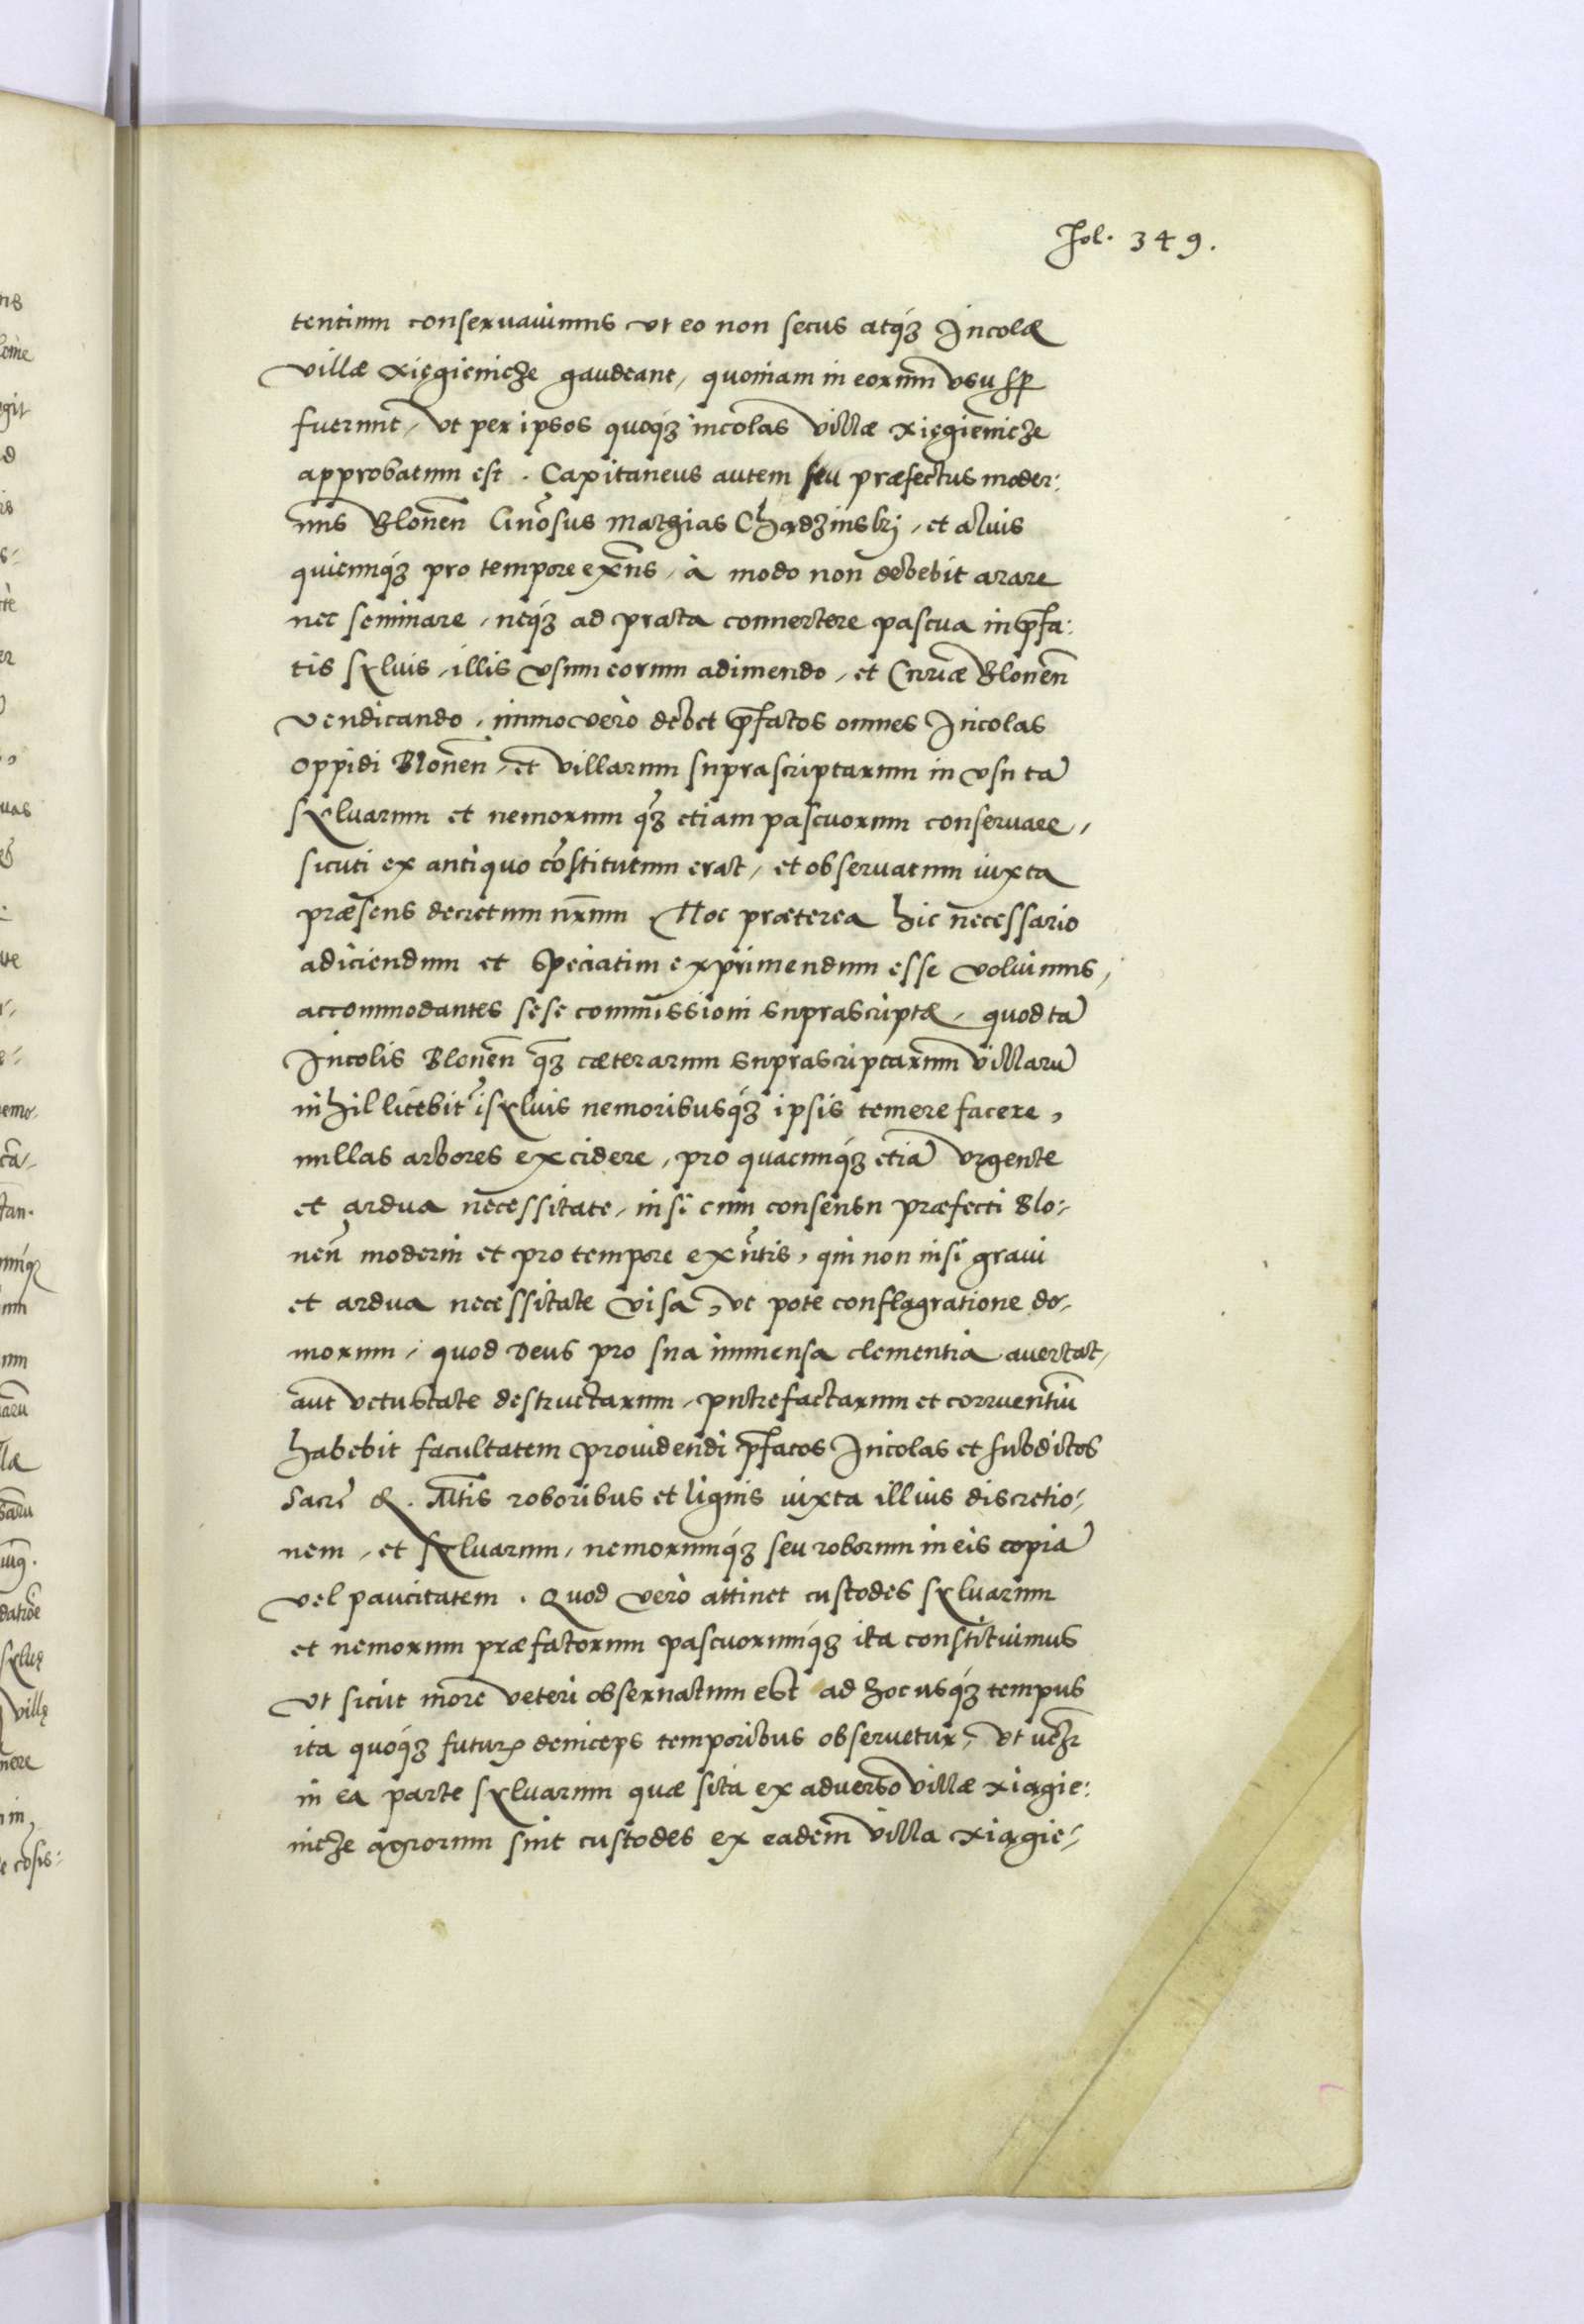 Fol. 349.
tentium conseruauimus vt eo non secus atq́ꝫ Incolæ
villæ xięgieniche gaudeant, quoniam in eorum̄ vsu sꝑ
fuerunt, vt per ipsos quoq́ꝫ incolas villæ xięgieniche
approbatum est. Capitaneus autem seu præfectus moder:
nus Blonen̄ Gñosus Mathias Chądzinskj, et aluis
quicunq́ꝫ pro tempore exñs, à modo non debebit arare
nec seminare, neq́ꝫ ad prata conuertere pascua in p̄fa:
tis syluis, illis vsum eorum adimendo, et Curiæ Blonen̄
vendicando, immo verò debet p̄fatos omnes Incolas
oppidi Blonen̄, et villarum suprascriptarum in vsu tā
syluarum et nemorum q̄ꝫ etiam pascuorum conseruare,
sicuti ex antiquo cōstitutum erat, et obseruatum iuxta
præsens decretum nr̄um. Hoc præterea hic necessario
adiiciendum et speciatim exprimendum esse voluimus,
accommodantes sese commissioni suprascriptæ, quod tā
Incolis Blonen̄ q̄ꝫ cæterarum suprascriptarum villarū
nihil licebit ī syluis nemoribusq́ꝫ ipsis temere facere,
nullas arbores excidere, pro quacunq́ꝫ etiā vrgente
et ardua necessitate, nisi cum consensu præfecti Blo:
nen̄ moderni et pro tempore exñtis, qui non nisi graui
et ardua necessitate visa, vt pote conflagratione do:
morum, quod Deus pro sua immensa clementia auertat,
aut vetustate destructarum, putrefactarum et corruentiū
habebit facultatem prouidendi p̄fatos Incolas et subditos
Sacrę R. Mtis roboribus et lignis iuxta illius discretio:
nem, et syluarum, nemorumq́ꝫ seu roborum in eis copiā
vel paucitatem. Quod verò attinet custodes syluarum
et nemorum præfatorum pascuorumq́ꝫ ita constituimus
vt sicut more veteri obseruatum est ad hocusq́ꝫ tempus
ita quoq́ꝫ futuris deinceps temporibus obseruetur, vt
in ea parte syluarum quæ sita ex aduerso villæ xiągie:
niche agrorum sint custodes ex eadem villa xiągie: